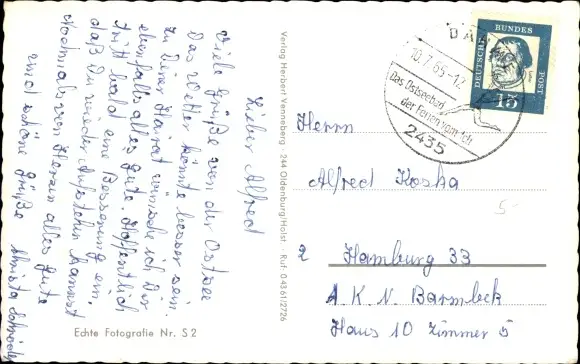 Lieber Alfred
Viele Grüße von der Ostsee
Das Wetter könnte besser sein.
Zu Deiner Heirat wünsche ich Dir
ebenfalls alles gute. Hoffentlich
tritt bald eine Besserung ein,
daß Du wieder Aufstehen kannst
Nochmals von Herzen alles gute
und schöne Grüße
Christa
Echte Fotografie Nr. S 2
Verlag Herbert Venneberg · 244 Oldenburg/Holst · Ruf: 0 4361/2726
10.7.65-12
Das Ostseebad
der Ferien vom Ich
2435
DEUTSCHE
BUNDES
POST
15
Herrn
Alfred Koska
5
2 Hamburg 33
A. K. N. Barmbek
Haus 10 Zimmer 5